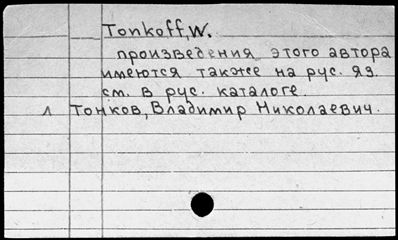 Tonkoff, W.
произведения этого автора
имеются также на рус. яз.
см. в рус. каталоге.
л Тонков, Владимир Николаевич.